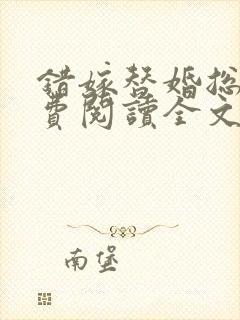 錯嫁替婚總
費閱讀全文
南堡